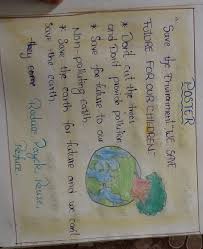 POSTER
"Save the Environment" WE SAVE
FUTURE FOR OUR CHILDREN
* Don't cut the trees
and Don't provide pollution
* Save for future to our
Non-polluting earth.
* Save the earth for future and we can't
save the earth.
they come
Reduce Recycle Reuse